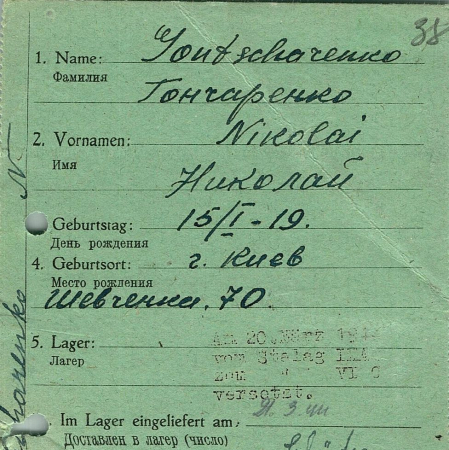 38
1. Name: Gontscharenko
Фамилия
Гончаренко
2. Vornamen: Nikolai
Имя
Николай
Geburtstag: 15/I-19.
День рождения
4. Geburtsort: г. Киев
Место рождения
Шевченка. 70.
5. Lager: Am 20. März
Лагер vom Stalag
zum " VI C
versetzt.
Im Lager eingeliefert am:
Доставлен в лагер (число)
charenko N